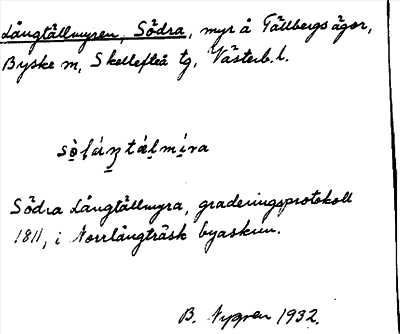 Långtällmyren, Södra, myr å Tällbergs ägor,
Byske m, Skellefteå tg, Västerb. l.
Södra Långtällmyra, graderingsprotokoll
1811, i Norrlångträsk byaskrin.
B. Nygren 1932.